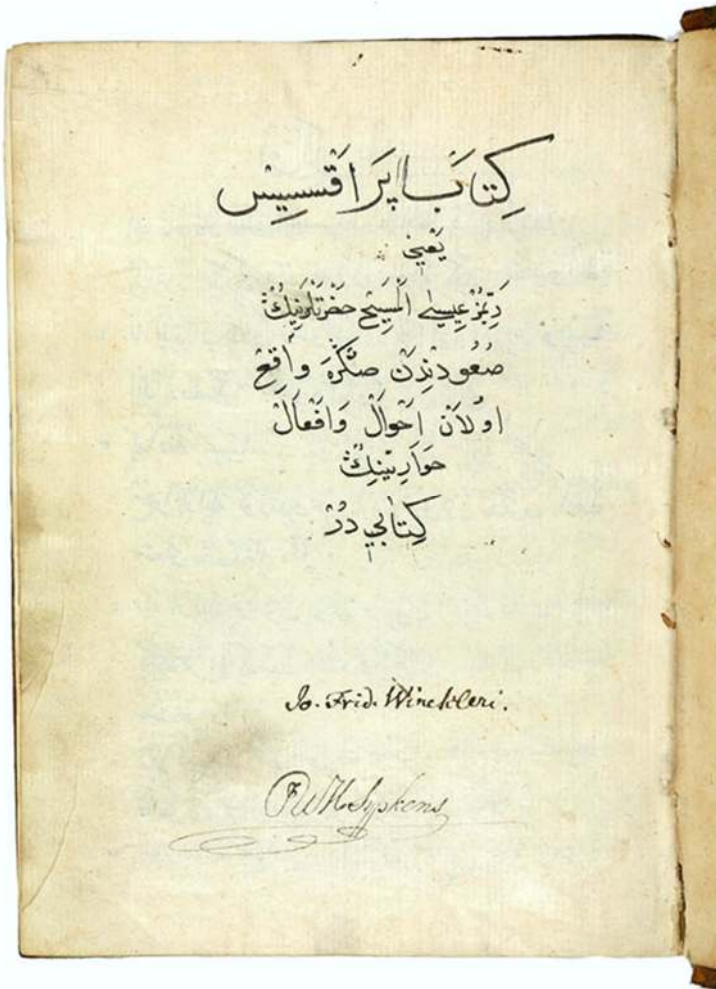 كِتَابْ اپَرَاقْسِيسْ
يَعْنِي
رَبِّمُزْ عِيسٰي اَلْمَسِيحْ حَضْرَتْلَرِنِيڭْ
صُعُودِنْدِنْ صُڭْرَهَ وَاقِعْ
اوُلَانْ اَحْوَالْ وَاَفْعَالْ
حَوَارِيِّينِڭْ
كِتَابِي دُرْ
Jo. Frid. Winckleri.